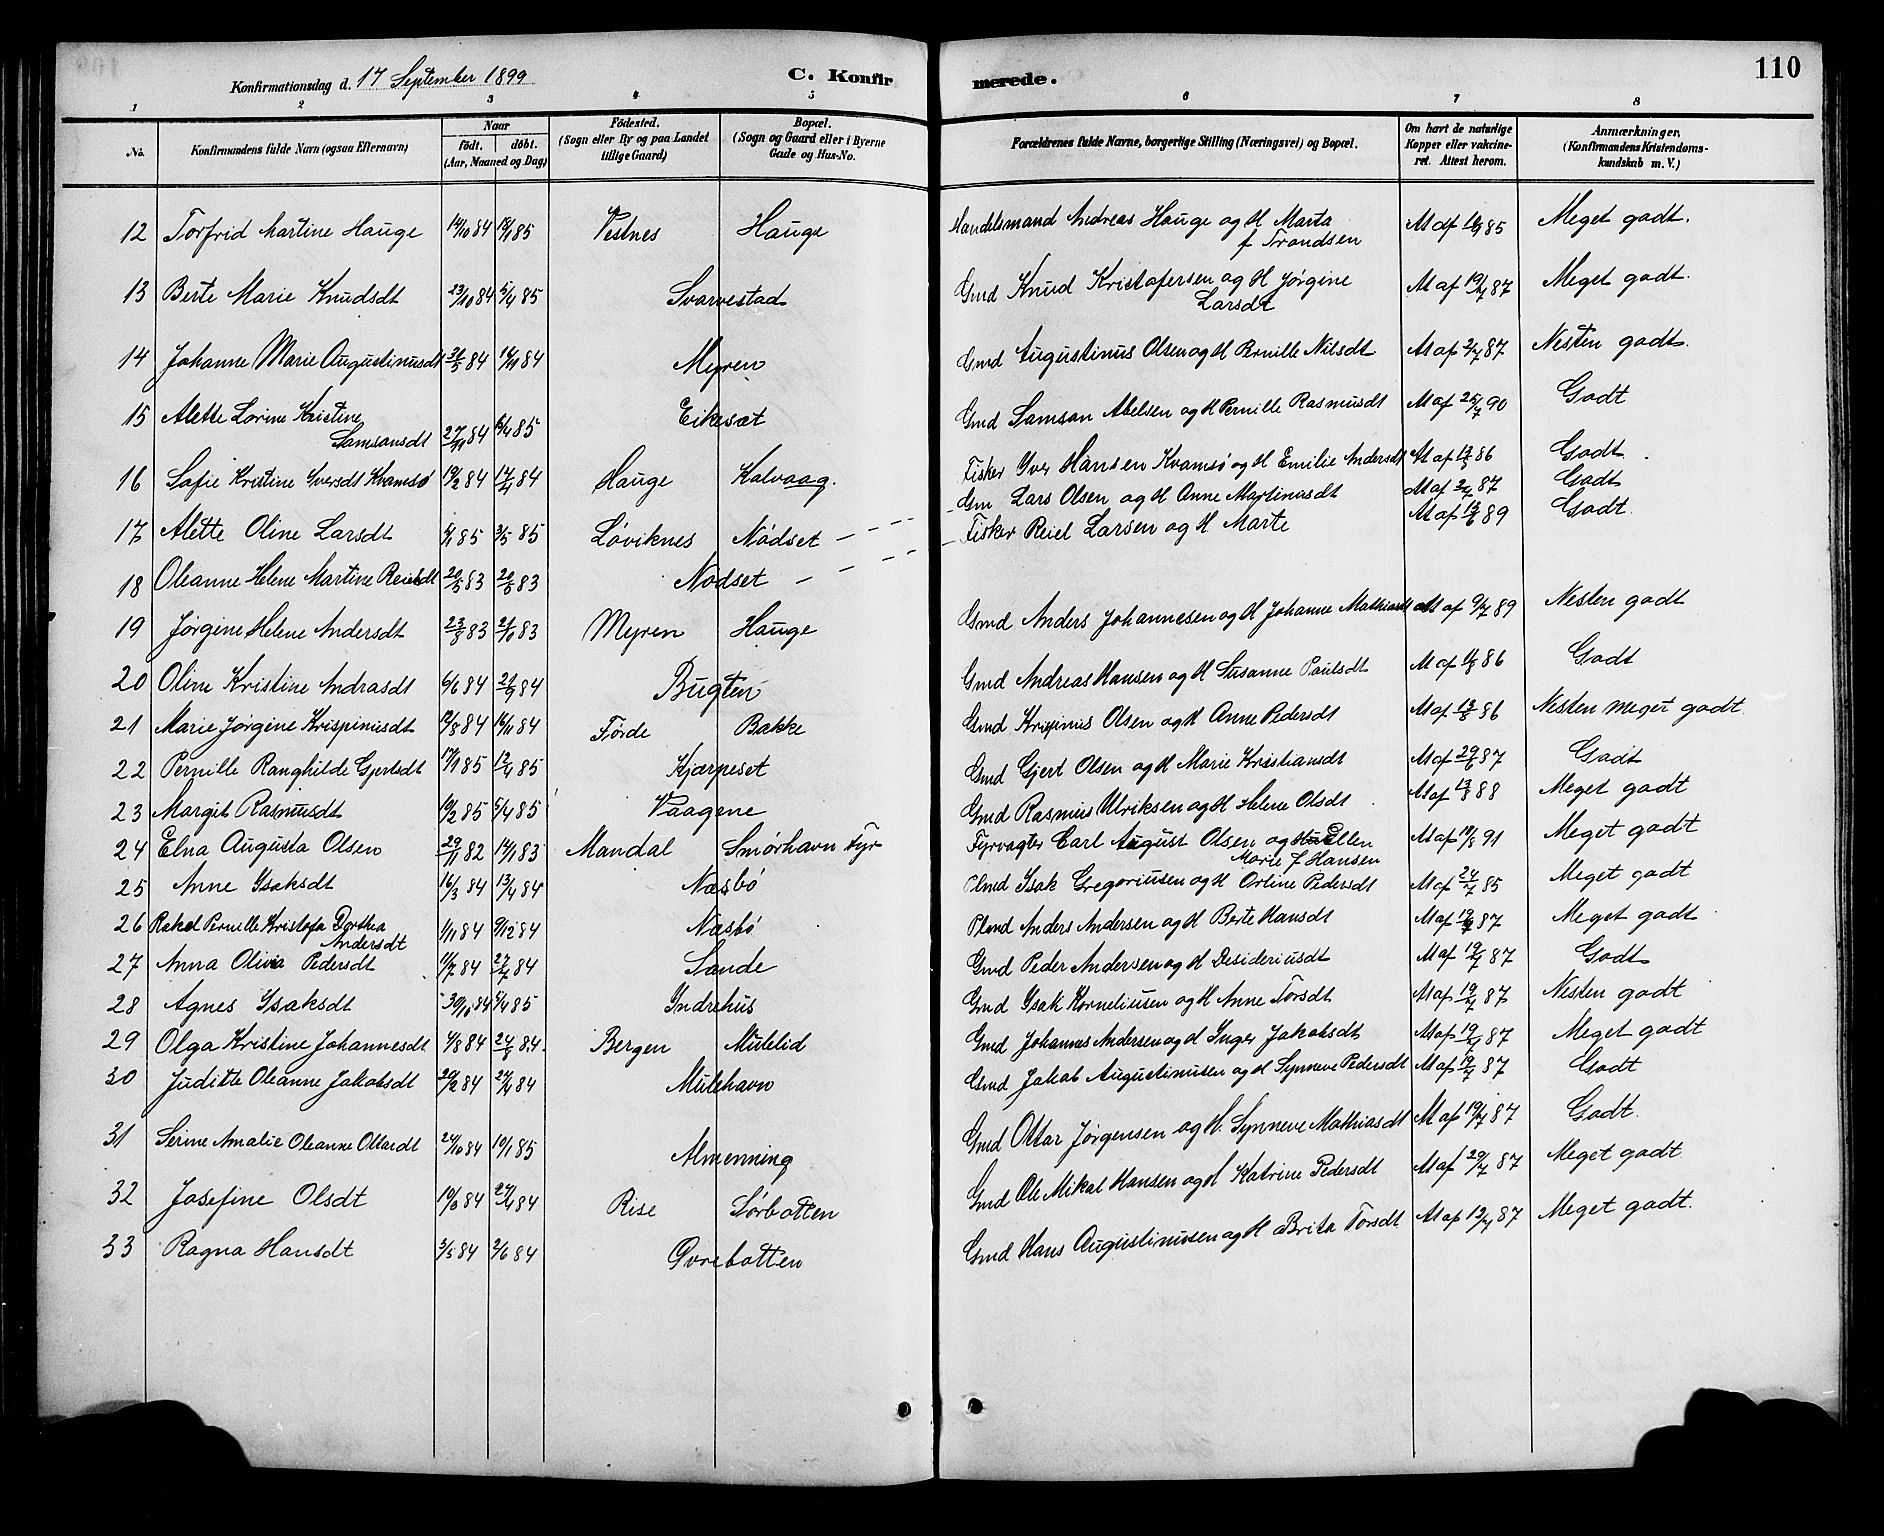 110
Konfirmationsdag d. 17 September 1899
C. Konfirmerede.
1 2 3 4 5 6 7 8
No. Konfirmandens fulde Navn (ogsaa Efternavn) Naar födt. döbt. (Aar, Maaned og Dag) Födested. (Sogn eller By og paa Landet tillige Gaard) Bopæl. (Sogn og Gaard eller i Byerne Gade og Hus-No. Forældrenes fulde Navne, borgerlige Stilling (Næringsvei) og Bopæl. Om havt de naturlige Kopper eller vaccineret. Attest herom. Anmærkninger. (Konfirmandens Kristendomskundskab m. V.)
12 Torfrid Martine Hauge 14/10 84 85 Vestnes Hauge Handelsmand Andreas Hauge og H Marta f Trondsen M af 85 Meget godt.
13 Berte Marie Knudsdt 23/10 84 5/4 85 Svarvestad Gmd Knud Kristofersen og H Jørgine Larsdt M af 19/7 87 Meget godt.
14 Johanne Marie Augustinusdt 84 84 Myren Gmd Augustinus Olsen og H Pernille Nilsdt M af 87 Nesten godt.
15 Alette Lorine Kristine Samsonsdt 27/11 84 85 Eikesæt Gmd Samson Abelsen og H Pernille Rasmusdt M af 25/7 90 Godt
16 Sofie Kristine Iversdt Kvamsø 19/2 84 84 Hauge Kalvaag. Fisker Iver Hansen Kvamsø og H Emilie Andersdt M af 86 Godt
17 Alette Oline Larsdt 85 3/5 85 Løviknes Nødset Gm Lars Olsen og H Anne Martinusdt M af 87 Godt
18 Oleanne Helene Martine Reielsdt 20/5 83 83 Nødset Fisker Reiel Larsen og H Marte M af 89 Godt.
19 Jørgine Helene Andersdt 23/8 83 21/10 83 Myren Hauge Gmd Anders Johannesen og H Johanne Mathiasdt M af 9/7 89 Nesten godt
20 Oline Kristine Andrasdt 6/6 84 21/9 84 Bugten Gmd Andreas Hansen og H Susanne Paulsdt M af 86 Godt
21 Marie Jørgine Krispinusdt 12/8 84 16/11 84 Førde Bakke Gmd Krispinus Olsen og H Anne Pedersdt M af 13/8 86 Nesten meget godt
22 Pernille Ranghilde Gjertsdt 17/1 85 12/4 85 Kjærpeset Gmd Gjert Olsen og H Marie Kristiansdt M af 87 Godt
23 Margit Rasmusdt 10/2 85 5/4 85 Vaagene Gmd Rasmus Ulriksen og H Helene Olsdt M af 13/8 88 Meget godt
24 Elna Augusta Olsen 29/11 82 14/1 83 Mandal Smørhavn Fyr Fyrvogter Carl August Olsen og Hu Ellen Marie f Hansen M af 19/8 91 Meget godt
25 Anne Isaksdt 16/3 84 13/4 84 Næsbø Plmd Isak Gregoriusen og H Orline Pedersdt M af 24/7 85 Meget godt
26 Rakel Pernille Kristofa Dorthea Andersdt 1/11 84 9/12 84 Næsbø Plmd Anders Andersen og H Berte Hansdt M af 87 Meget godt
27 Anna Olivia Pedersdt 11/7 84 84 Sande Gmd Peder Andersen og H Desideriusdt M af 19/7 87 Godt
28 Agnes Isaksdt 30/10 84 5/4 85 Indrehus Gmd Isak Korneliusen og H Anne Torsdt M af 19/7 87 Nesten godt
29 Olga Kristine Johannesdt 4/8 84 24/8 84. Bergen Mulelid Gmd Johannes Andersen og H Inger Jakobsdt M af 19/7 87 Meget godt
30 Juditte Oleanne Jakobsdt 29/2 84 84 Mulehavn Gmd Jakob Augustinusen og H Synneve Pedersdt M af 19/7 87 Godt
31 Serine Amalie Oleanne Ottardt 24/10 84 10/1 85 Almenning Gmd Ottar Jørgensen og H. Synneve Mathiasdt M af 19/7 87 Godt.
32 Josefine Olsdt 84 84 Rise Sørbotten Gmd Ole Mikal Hansen og H Katrine Pedersdt M af 29/7 87 Meget godt
33 Ragna Hansdt 3/5 84 2/6 84 Øvrebotten Gmd Hans Augustinusen og H Brita Torsdt M af 12/7 87 Meget godt.